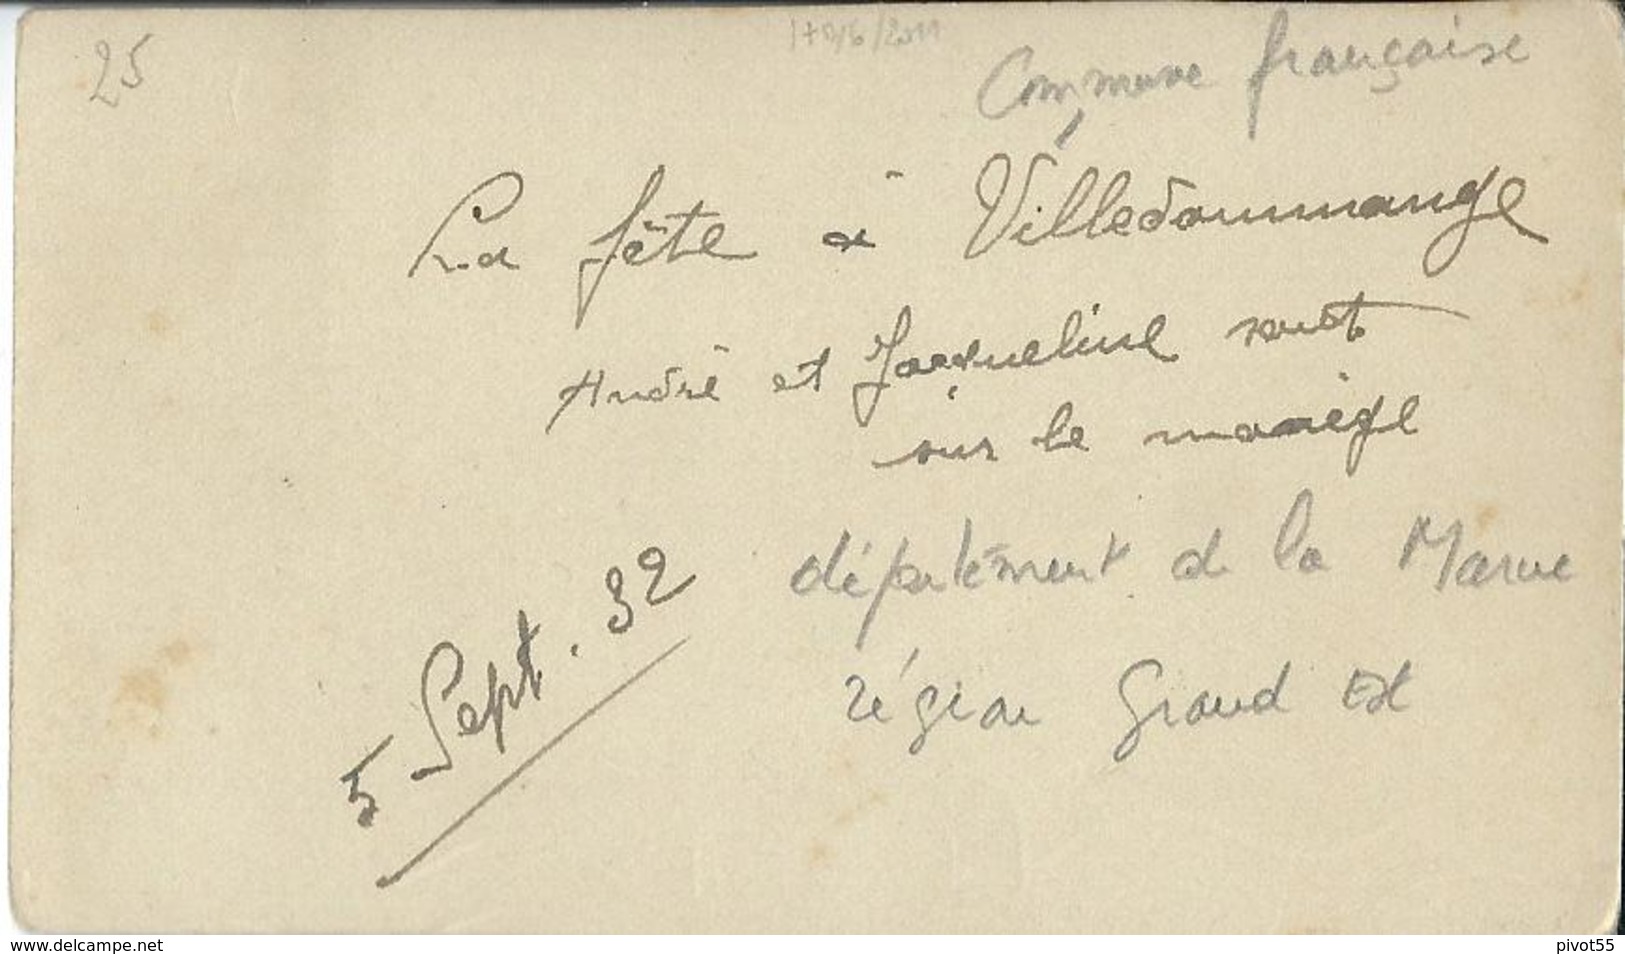 25
Commune française
La fête à Villedommange
André et Jacqueline sont
sur le manège
5 Sept. 32
département de la Marne
région Grand Est
www.delcampe.net
pivot55